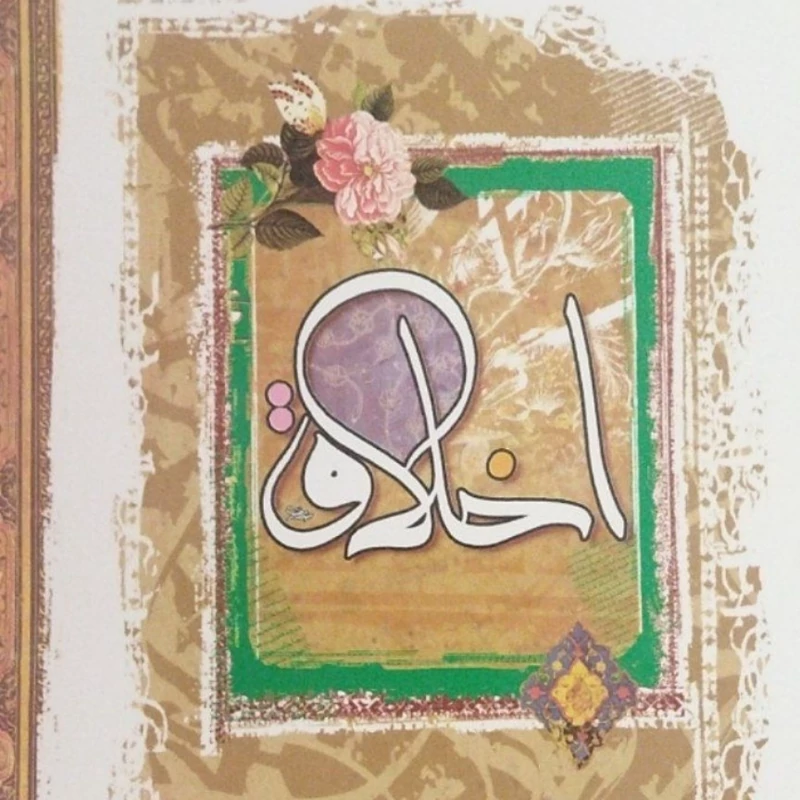 اخلاق